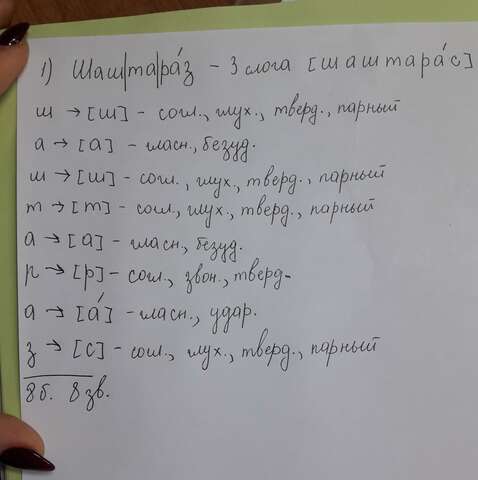 1) Шаш|та|ра́з - 3 слога [шаштара́с]
ш → [ш] - согл., глух., тверд., парный
а → [а] - гласн., безуд.
ш → [ш] - согл., глух., тверд., парный
т → [т] - согл., глух., тверд., парный
а → [а] - гласн., безуд.
р → [р] - согл., звон., тверд-
а → [а́] - гласн., удар.
з → [с] - согл., глух., тверд., парный
8б. 8 зв.